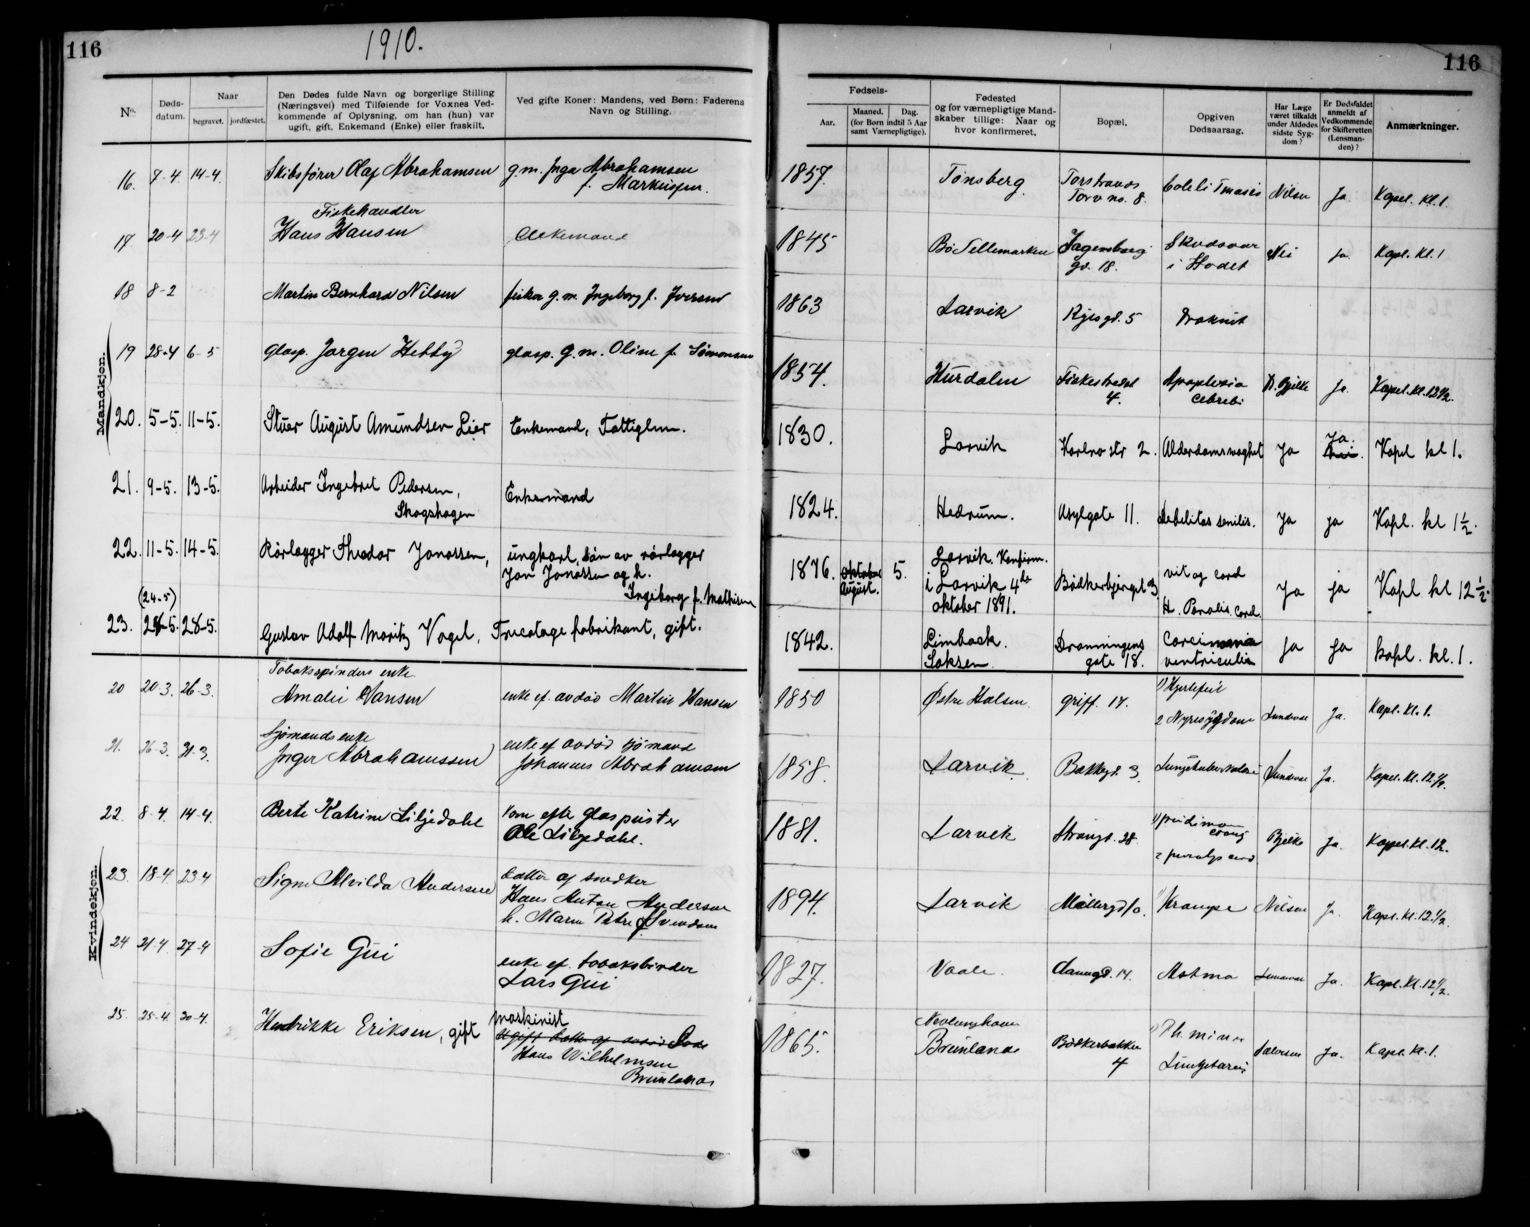 116
1910.
116
No.
Døds-
datum.
Naar
begravet.
jordfæstet.
Den Dødes fulde Navn og borgerlige Stilling
(Næringsvei) med Tilføiende for Voxnes Ved-
kommende af Oplysning, om han (hun) var
ugift, gift, Enkemand (Enke) eller fraskilt.
Ved gifte Koner: Mandens, ved Børn: Faderens
Navn og Stilling.
Fødsels-
Aar.
Maaned.
Dag.
(for Børn indtil 5 Aar
samt Værnepligtige).
Fødested
og for værnepligtige Mand-
skaber tillige: Naar og
hvor konfirmeret.
Bopæl.
Opgiven
Dødsaarsag.
Har Læge
været tilkaldt
under Aldødes
sidste Syg-
dom?
Er Dødsfaldet
anmeldt af
Vedkommende
for Skifteretten
(Lensman-
den)?
Anmærkninger.
Mandkjøn.
16. 7-4 14-4. Skibsfører Olaf Abrahamsen g.m. Inga Abrahamsen
f. Markussen. 1857. Tønsberg Torstrands
Torv no. 8. Nilsen Ja. Kapel. kl. 1.
17 20-4 23-4 Fiskehandler
Hans Hansen Enkemand 1845 Bø Tellemarken Jegersborg
gd. 18. Skudsaar
i Hodet Nei ja Kapl. kl. 1
18 8-2 Martin Bernhard Nilsen fisker g.m. Ingeborg f. Iversen 1863 Larvik Ryesgd. 5 Druknet
19 28-4 6-5 glasp. Jørgen Hebby glasp. g.m. Oline f. Simonsen 1854. Hurdalen Fiskestrædet
4. Apoplexia
cebrebi D. Bjelke Ja. Kapel. kl. 12 1/2.
20. 5-5. 11-5. Stuer August Amundsen Lier Enkemand, Fattiglem. 1830. Larvik Karlsro str 2. Alderdomssvaghet Ja Ja
Kapel kl 1.
21. 9-5. 13-5. Arbeider Ingebret Pedersen,
Skogshagen Enkemand 1824. Hedrum. Asylgate 11. Debelitas senilis. Ja ja Kapl. kl 1 1/2.
22. 11-5. 14-5. Rørlægger Theodor Jonassen, ungkarl, søn av rørlægger
Jon Jonassen og h.
Ingeborg f. Mathisen 1876. oktober
August. 5. Larvik. Konfirm.
i Larvik 4de
oktober 1891. Bødkerbjerget 3 vit og cord
H. Paralis cord. Ja ja Kapl kl 12 1/2.
(24-5)
23. 28-5. 28-5. Gustav Adolf Moritz Vogel, Tricotage fabrikant, gift. 1842. Limbach.
Saksen. Dronningens
gate 18. Carcinoma
ventriculis Ja Ja kapl. kl. 1.
Kvindekjøn.
20 20-3. 26-3. Tobakspinders enke
Amalie Hansen enke ef. avdød Martin Hansen 1850 Østre Halsen griff. 17. 1) Hjertefeil
2 Nyresygdom Lundevall Ja. Kapl. kl. 1.
21. 26-3. 31-3. Sjømands enke
Inger Abrahamssen enke ef avdød sjømand
Johannes Abrahamsen 1858. Larvik Bakkegd. 3 Lungetuberkulose Lundevall Ja. Kapel. kl. 12 1/2.
22. 8-4. 14-4. Berte Katrine Liljedahl kone efter glaspuster
Ole Liljedahl. 1881. Larvik Strangd. 28 Bjelke Ja. Kappel. kl. 12.
23. 18-4. 23-4 Signe Alvilda Andersen datter af snedker
Hans Anton Andersen
h. Maren Petre f. Svendsen 1894. Larvik Møllergd 10. 1) Krampe Nilsen Ja. Kapl. kl. 12 1/2.
24 21-4. 27-4 Sofie Gui enke ef. tobaksbinder
Lars Gui 1827. Vaale. Kaungd. 14. Astma Lundevall Ja. Kapel. kl. 12 1/2.
25. 25-4. 30-4. Hendrikke Eriksen, gift maskinist
Ugift datter af avdød Lods
Hans Wilhelmsen
Brunlanes 1865. Nevlunghavn
Brunlanes Bødkerbakken
4 Lungetaring Ja. Kapel. kl. 1.